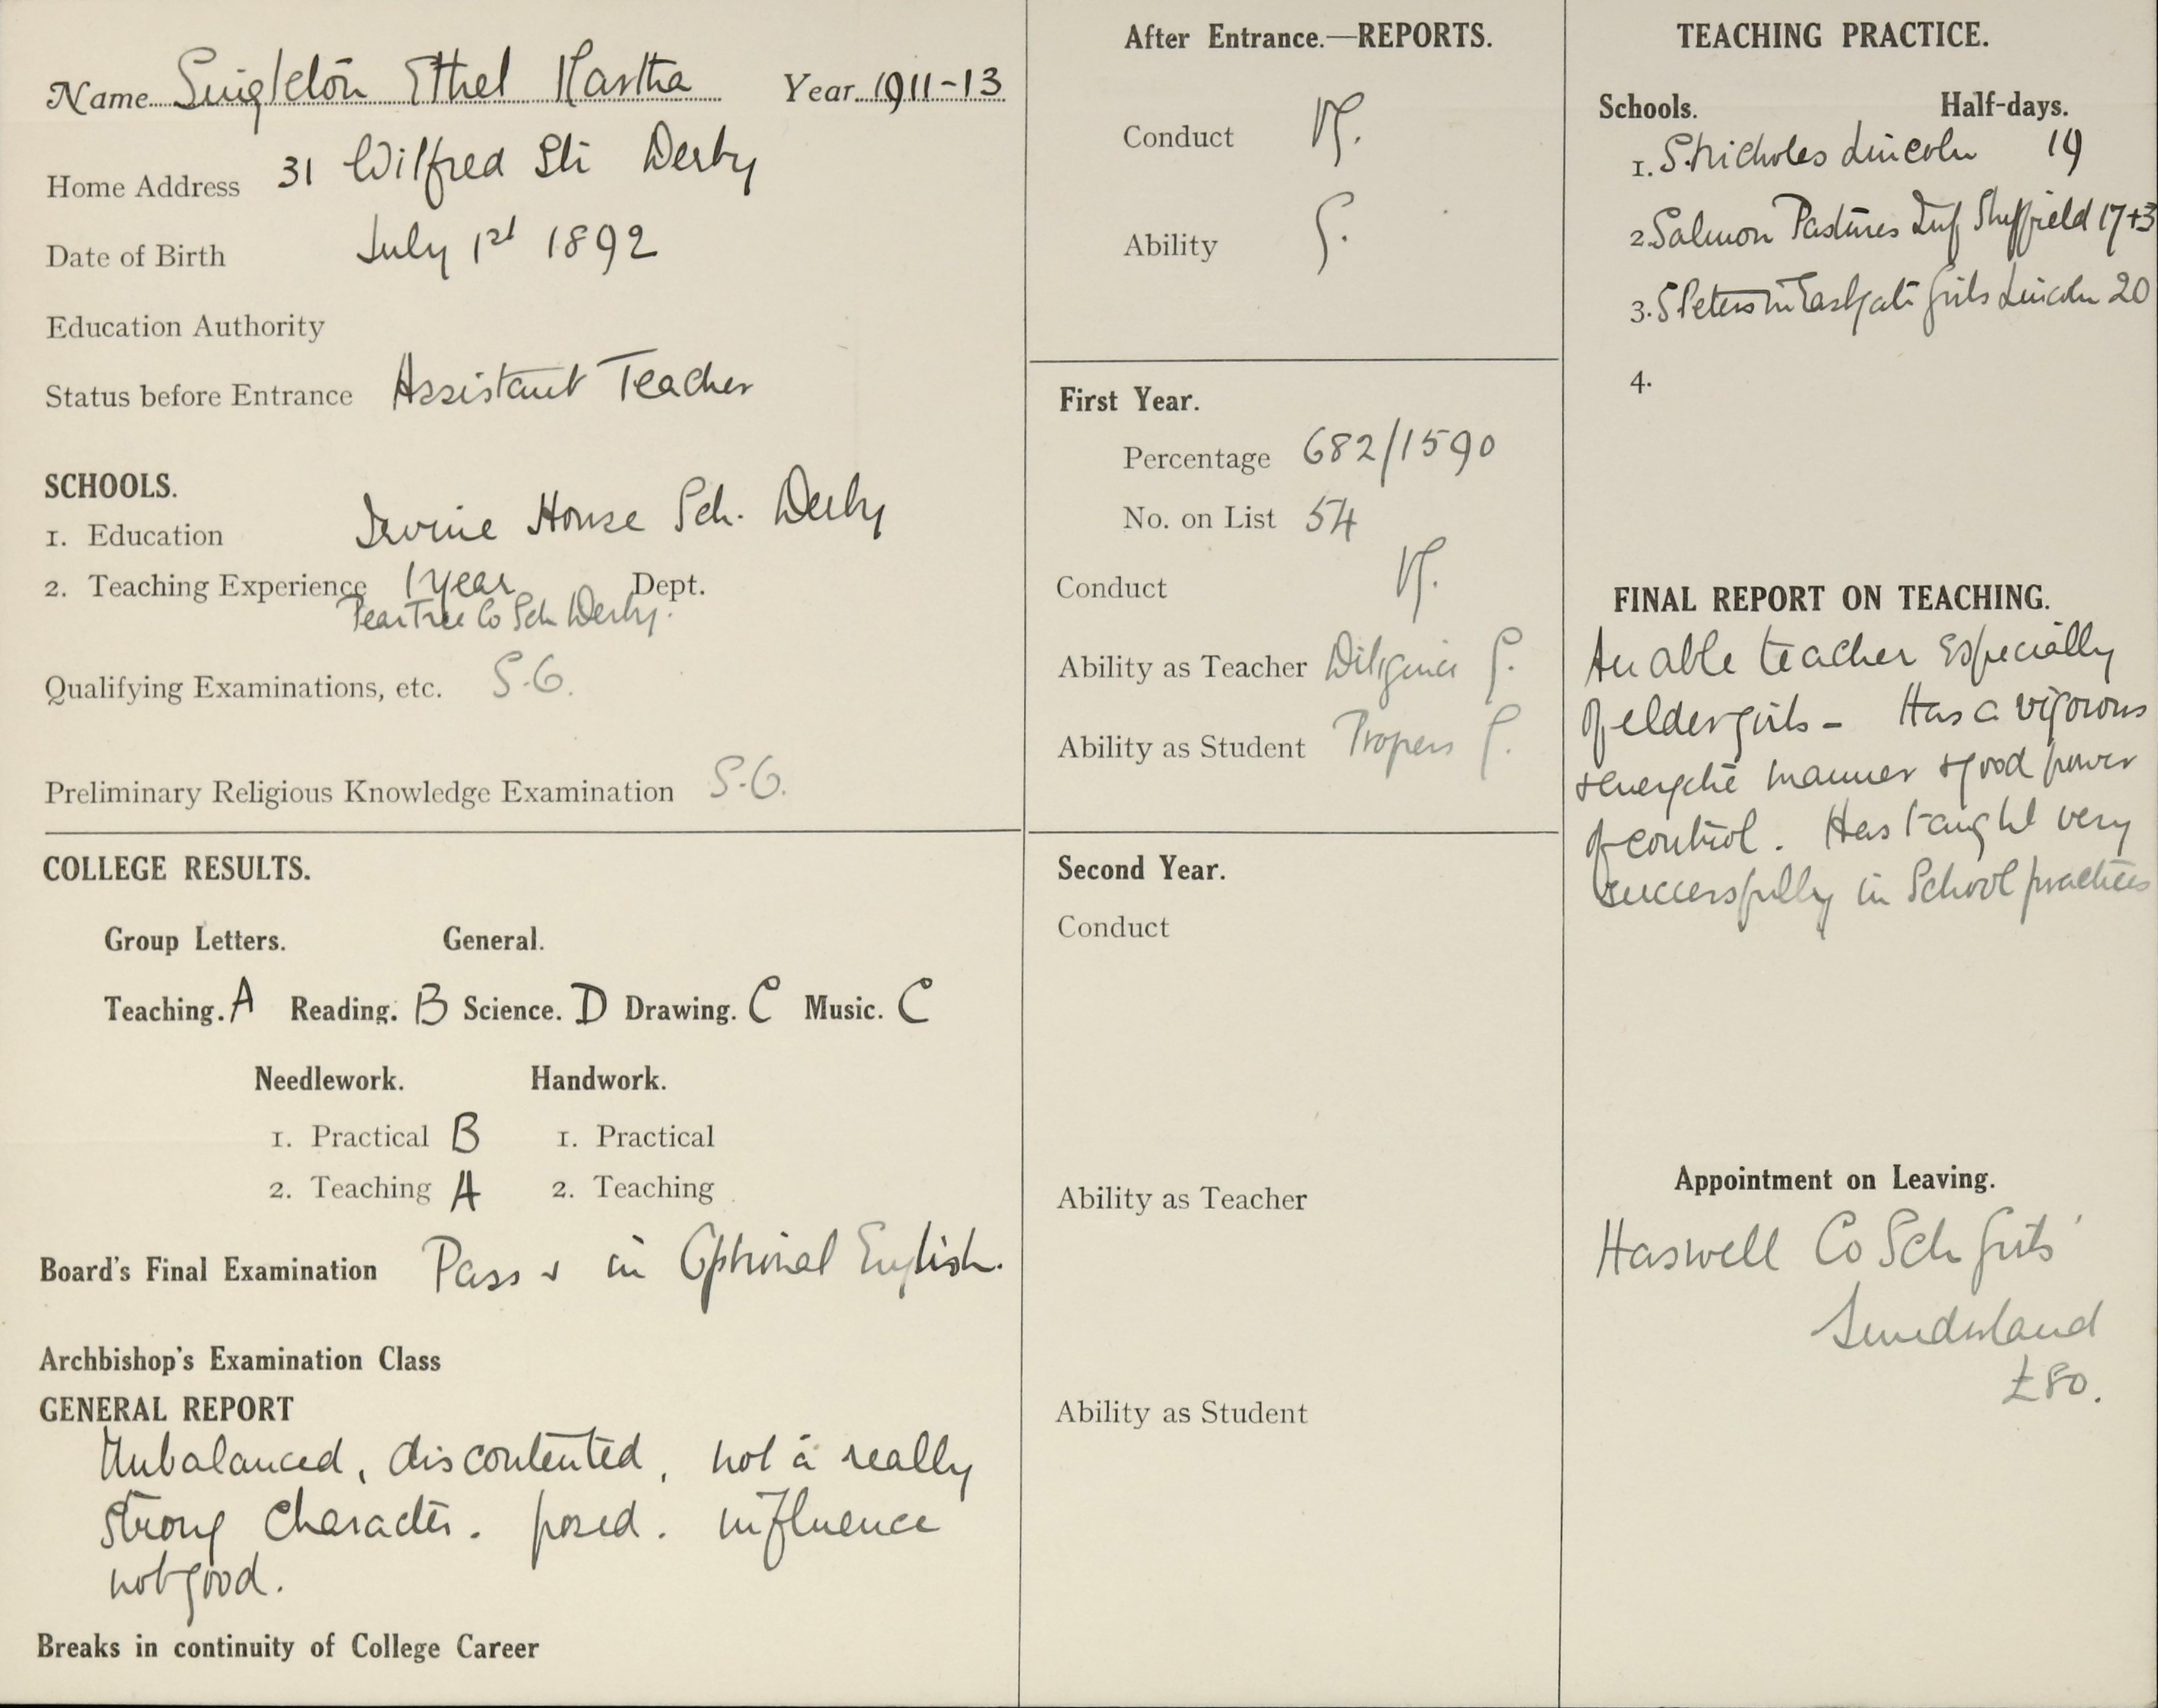 Name Singleton Ethel Martha Year 1911-13
Home Address 31 Wilfred St: Derby
Date of Birth July 1st 1892
Education Authority
Status before Entrance Assistant Teacher
SCHOOLS.
1. Education Irvine House Sch. Derby
2. Teaching Experience 1 year Dept.
PearTree Co Sch Derby.
Qualifying Examinations, etc. S.G.
Preliminary Religious Knowledge Examination S.G.
COLLEGE RESULTS.
Group Letters. General.
Teaching. A Reading. B Science. D Drawing. C Music. C
Needlework. Handwork.
1. Practical B 1. Practical
2. Teaching A 2. Teaching
Board's Final Examination Pass & in Optional English.
Archbishop's Examination Class
GENERAL REPORT
Unbalanced, discontented, not a really
strong character. posed. influence
not good.
Breaks in continuity of College Career
After Entrance.—REPORTS.
Conduct
Ability
First Year.
Percentage 682/1590
No. on List 54
Conduct
Ability as Teacher Diligence
Ability as Student Progress
Second Year.
Conduct
Ability as Teacher
Ability as Student
TEACHING PRACTICE.
Schools. Half-days.
1. S. Nicholas Lincoln 19
2. Salmon Pastures Inf Sheffield 17+3
3. S Peters in Eastgate Girls Lincoln 20
4.
FINAL REPORT ON TEACHING.
An able teacher especially
of elder girls - Has a vigorous
& energetic manner & good power
of control. Has taught very
successfully in School practices
Appointment on Leaving.
Haswell Co Sch Girls'
Sunderland
£80.